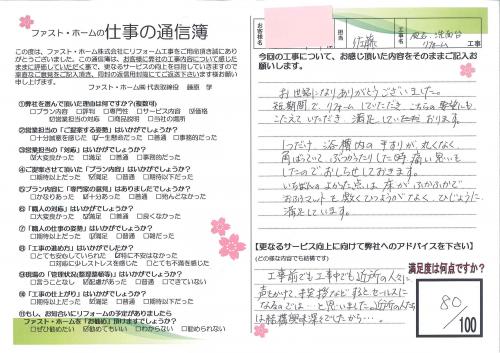 ファスト・ホームの仕事の通信簿
この度は、ファスト・ホーム株式会社にリフォーム工事をご用命頂き誠にあり
がとうございました。この通信簿は、お客様に弊社の工事内容について感じた
ままに評価していただく事で、更なるサービスの向上を目指していきますので
率直なご意見をご記入頂き、同封の返信用封筒にてご返送下さいます様お願い
申し上げます。
ファスト・ホーム㈱ 代表取締役 藤原 学
①弊社を選んで頂いた理由は何ですか?(複数可)
□プラン内容 □評判 □専門性 □サービス内容 ☑価格
☑営業担当の対応 □商品説明 □当社の場所
②営業担当の「ご提案する姿勢」はいかがでしょうか?
□十分誠意を感じた ☑一生懸命だった □普通 □事務的だった
③営業担当の「対応」はいかがでしょうか?
☑大変良かった □満足 □普通 □事務的だった
④ご提案させて頂いた「プラン内容」はいかがでしょうか?
□期待以上だった ☑満足 □普通 □期待以下だった
⑤プラン内容に「専門家の裁量」はありましたでしょうか?
□かなりあった ☑十分あった □普通 □他社とかわらない
⑥「職人の対応」はいかがでしょうか?
□大変良かった ☑満足 □普通 □良くなかった
⑦「職人の仕事の姿勢」はいかがでしょうか?
□期待以上だった ☑満足 □普通 □雑だった
⑧「工事の進め方」はいかがでしたか?
□とても安心していられた ☑特に不安はなかった
□対応に少しストレスを感じた □とても不満を感じた
⑨現場の「管理状況(整理整頓等)」はいかがでしょうか?
□言うことなし ☑配慮があった □普通 □問題があった
⑩「工事の仕上がり」はいかがでしょうか?
□期待以上だった ☑満足 □普通 □期待以下だった
⑪もし、お知合いにリフォームの予定がありましたら
ファスト・ホームを「お勧め」頂けますでしょうか?
□ぜひ勧めたい ☑勧めてもいい □わからない □勧められない
お客様名
佐藤
工事名
風呂・洗面台
リフォーム
工事
今回の工事について、お感じ頂いた内容をそのままご記入お
願いします。
お世話になりありがとうございました。
短期間で、リフォームしていただき、こちらの要望にも
こたえていただき 満足しております。
1つだけ、浴槽内の手すりが丸くなく、
角ばっていて、ぶつかったりした時痛い思いをし
たのでおしらせしておきます。
いちばんのよかった点は床がふかふかで
おふろマットを敷くひつようがなく、ひじょうに
満足しています。
【更なるサービス向上に向けて弊社へのアドバイスを下さい】
(どの様な内容でも結構です)
工事前でも工事中でも近所の人々に
声をかけて、挨拶などすると、セールスに
なるのでは…と思いました。近所の人たち
は結構興味深々でしたから…。
満足度は何点ですか?
80
/100